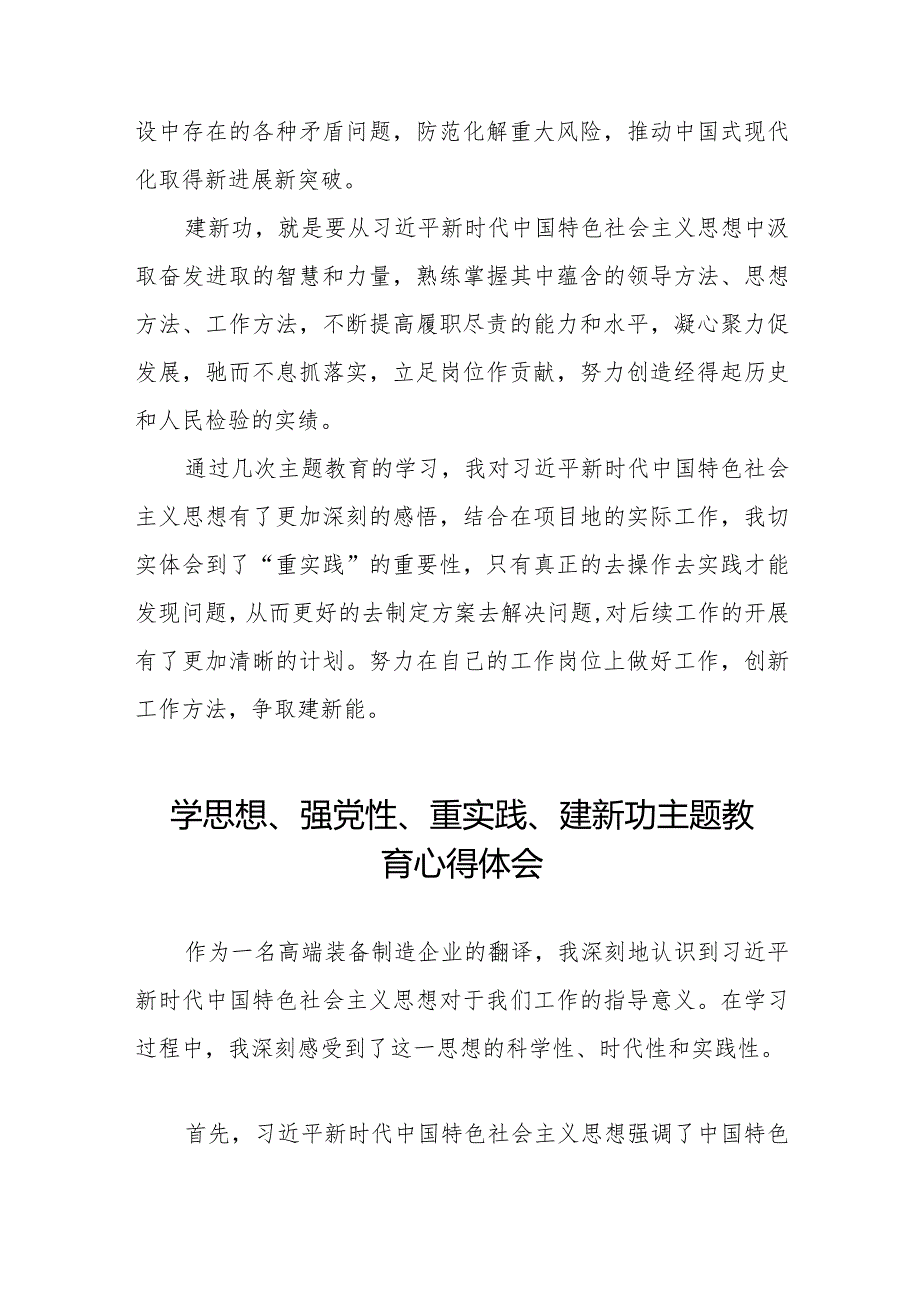 设中存在的各种矛盾问题，防范化解重大风险，推动中国式现代
化取得新进展新突破。
建新功，就是要从习近平新时代中国特色社会主义思想中汲
取奋发进取的智慧和力量，熟练掌握其中蕴含的领导方法、思想
方法、工作方法，不断提高履职尽责的能力和水平，凝心聚力促
发展，驰而不息抓落实，立足岗位作贡献，努力创造经得起历史
和人民检验的实绩。
通过几次主题教育的学习，我对习近平新时代中国特色社会
主义思想有了更加深刻的感悟，结合在项目地的实际工作，我切
实体会到了“重实践”的重要性，只有真正的去操作去实践才能
发现问题，从而更好的去制定方案去解决问题,对后续工作的开展
有了更加清晰的计划。努力在自己的工作岗位上做好工作，创新
工作方法，争取建新能。
学思想、强党性、重实践、建新功主题教
育心得体会
作为一名高端装备制造企业的翻译，我深刻地认识到习近平
新时代中国特色社会主义思想对于我们工作的指导意义。在学习
过程中，我深刻感受到了这一思想的科学性、时代性和实践性。
首先，习近平新时代中国特色社会主义思想强调了中国特色